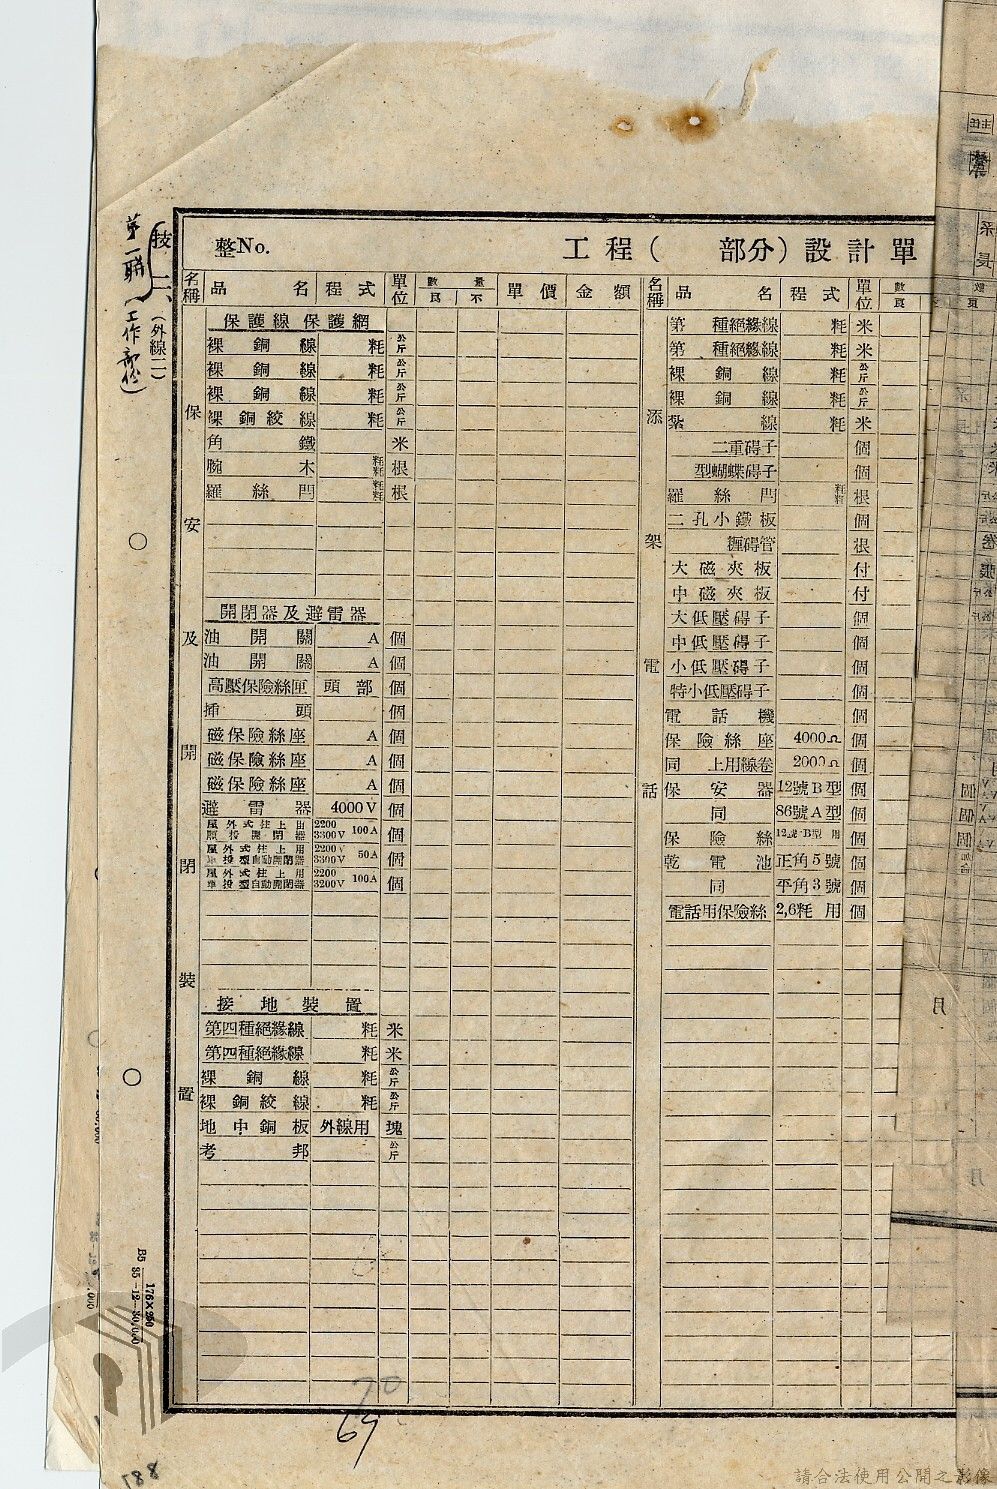 第一聯(工作部份)
技一六(外線二)
整No.
工程( 部分)設計單
名稱 品名 程式 單位 數量 單價 金額 名稱 品名 程式 單位 數
保安及開閉裝置
保護線 保護網
裸銅線 粍 公斤
裸銅線 粍 公斤
裸銅線 粍 公斤
裸銅絞線 粍 公斤
角鐵 米
腕木 粍粍 根
羅絲閂 粍粍 根
開閉器及避雷器
油開關 A 個
油開關 A 個
高壓保險絲匣 頭部 個
插頭 個
磁保險絲座 A 個
磁保險絲座 A 個
磁保險絲座 A 個
避雷器 4000V 個
2200 3300V 100A 個
屋外式柱上用單投型自動開閉器 2200V 3300V 50A 個
屋外式柱上用單投型自動開閉器 2200 3200V 100A 個
接地裝置
第四種絕緣線 粍 米
第四種絕緣線 粍 米
裸銅線 粍 公斤
裸銅絞線 粍 公斤
地中銅板 外線用 塊
考邦 公斤
添架電話
第 種絕緣線 粍 米
第 種絕緣線 粍 米
裸銅線 粍 公斤
裸銅線 粍 公斤
紮線 粍 米
二重碍子 個
型蝴蝶碍子 個
羅絲閂 粍粍 根
二孔小鐵板 個
碍管 根
大磁夾板 付
中磁夾板 付
大低壓碍子 個
中低壓碍子 個
小低壓碍子 個
特小低壓碍子 個
電話機 個
保險絲座 4000Ω 個
同上用線卷 2000Ω 個
保安器 12號B型 個
同 86號A型 個
保險絲 12號B型用 個
乾電池 正角5號 個
同 平角3號 個
電話用保險絲 2,6粍用 個
B5 176×250
35-12-30,000
70
69
788
月
請合法使用公開之影像